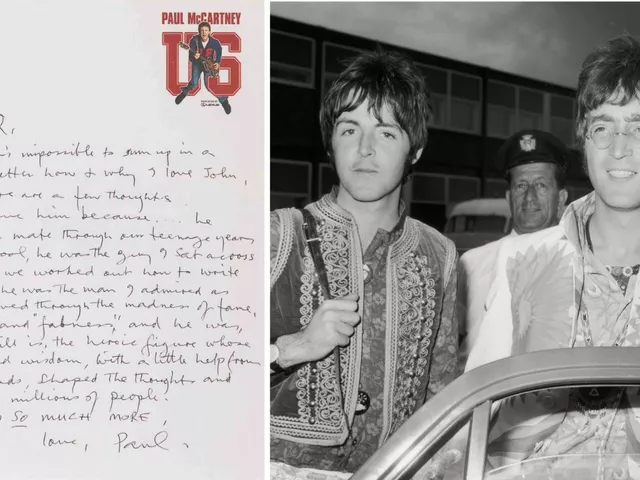 PAUL McCARTNEY
US
R,
's impossible to sum up in a
etter how & why I love John,
re are a few thoughts
ve him because.... he
s mate through our teenage years
ool, he was the guy I sat across
we worked out how to write
he was the man I admired as
ved through the madness of fame,
and "fabness", and he was,
ill is, the heroic figure whose
d wisdom, with a little help from
nds, shaped the thoughts and
millions of people.
s SO MUCH MORE,
love, Paul.